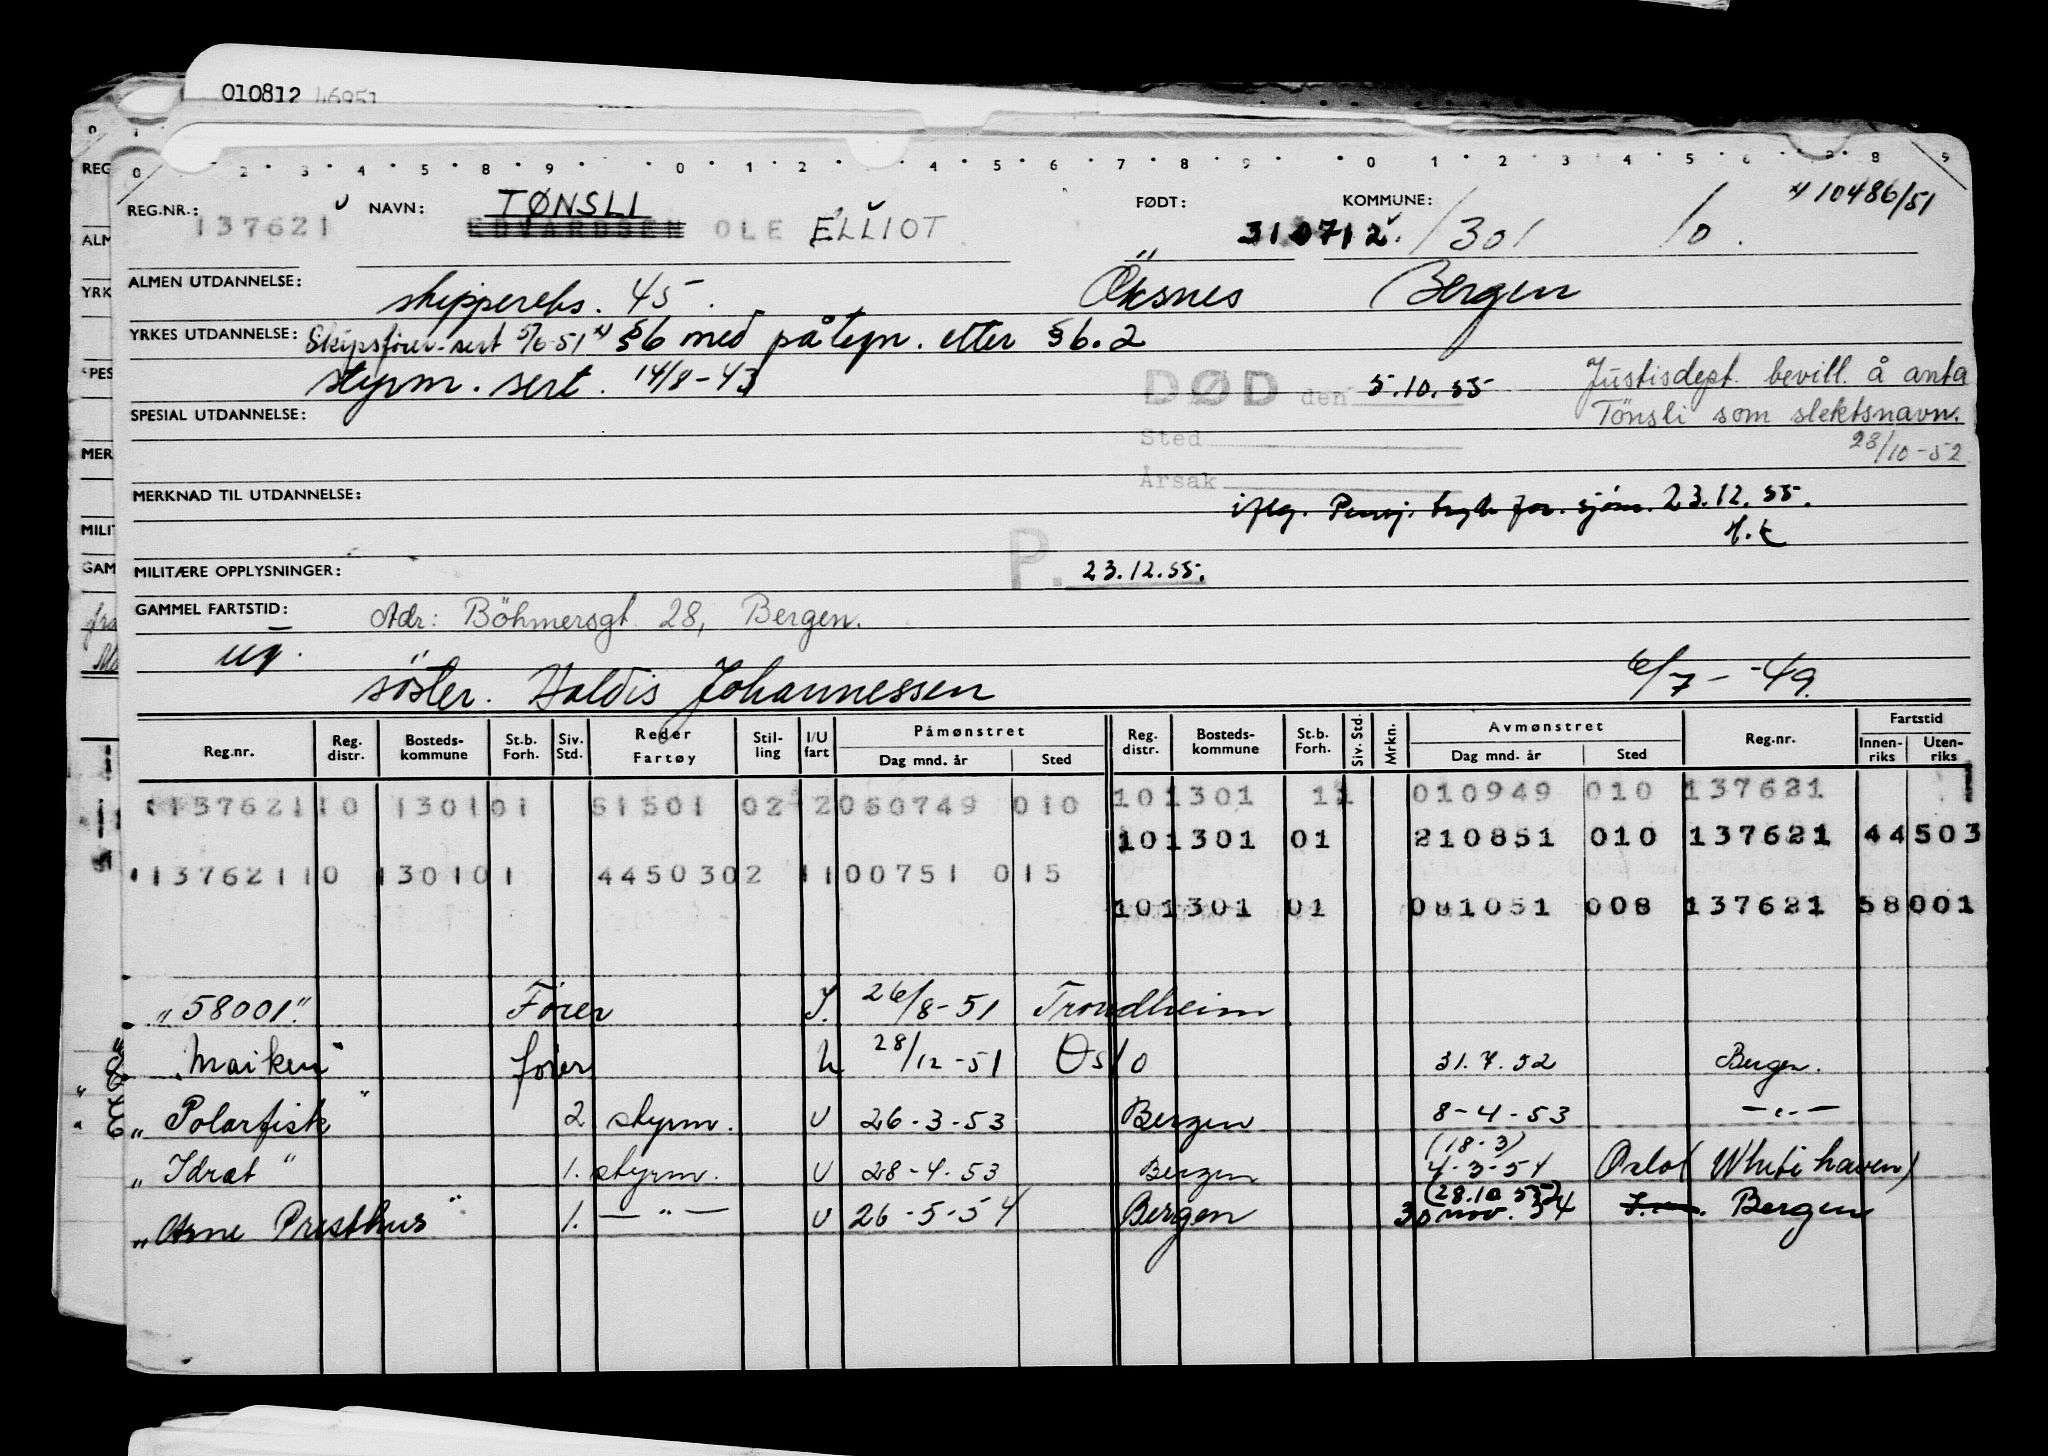 010812 46951
0 2 3 4 5 8 9 0 1 2 4 5 6 7 8 9 0 1 2 3 4 5 6 7 8 9
REG.NR.: 137621 NAVN: TØNSLI FØDT: KOMMUNE: 10486/51
EDVARDSEN OLE ELLIOT 310712. /301 /0.
ALMEN UTDANNELSE: skippereks. 45. Öksnes Bergen
YRKES UTDANNELSE: Skipsfører-sert 5/6-51 x) §6 med påtegn. etter §6.2
styrm. sert. 14/8-43 DØD den 5.10.55 Justisdept. bevill. å anta
SPESIAL UTDANNELSE: Sted Tönsli som slektsnavn.
28/10-52
Årsak
MERKNAD TIL UTDANNELSE: iflg. Pensj. tryk for. sjøm. 23.12.55.
H.t
MILITÆRE OPPLYSNINGER: P. 23.12.55.
GAMMEL FARTSTID: Adr: Böhmersgt. 28, Bergen.
ug. söster. Haldis Johannessen 6/7-49.
Reg.nr. Reg. distr. Bosteds- kommune St.b. Forh. Siv. Std. Reder Fartøy Stil- ling I/U fart Påmønstret Reg. distr. Bosteds- kommune St.b. Forh. Siv. Std. Mrkn. Avmønstret Reg.nr. Fartstid
Dag mnd. år Sted Dag mnd. år Sted Innen- riks Uten- riks
137621 10 1301 01 51501 02 2 050749 010 10 1301 11 010949 010 137621 1
10 1301 01 210851 010 137621 44503
137621 10 1301 01 44503 02 1 100751 015
10 1301 01 081051 008 137621 58001
"58001" Fører I. 26/8-51 Trondheim
"Maiken" fører U 28/12-51 Oslo 31.7.52 Bergen.
"Polarfisk" 2 styrm. U 26-3-53 Bergen 8-4-53 —"—
(18-3)
"Idræt" 1. styrm. U 28-4-53 Bergen 4-3-54 Oslo (Whitehaven)
(28.10
"Arne Presthus" 1. —"— U 26-5-54 Bergen 30 nov. 54 Bergen